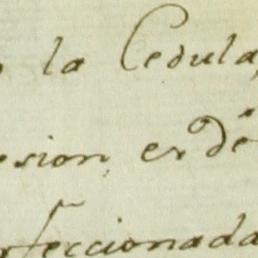 o la Cedula,
esion, es de
rfeccionada